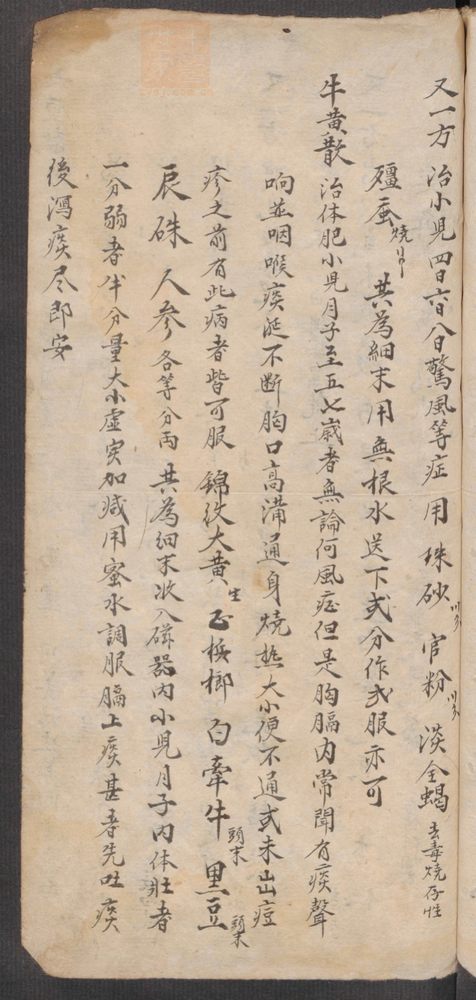 又一方 治小児四日六日八日驚風等症 用 珠砂 官粉 淡全蝎 去毒燒存性
殭蚕 燒 共為細末用無根水送下弍分作弍服亦可
牛黄散 治体肥小児月子至五七歲者無論何風症但是胸膈內常聞有痰聲
响並咽喉痰涎不断胸口高滿通身燒热大小便不通或未出痘
疹之前有此病者皆可服 錦紋大黄 生 正梹榔 白牽牛 頭末 黑豆 頭末
辰硃 人参 各等分両 共為細末收入磁器內小児月子內体壯者
一分弱者半分量大小虛实加减用蜜水調服膈上痰甚者先吐痰
後瀉痰尽即安